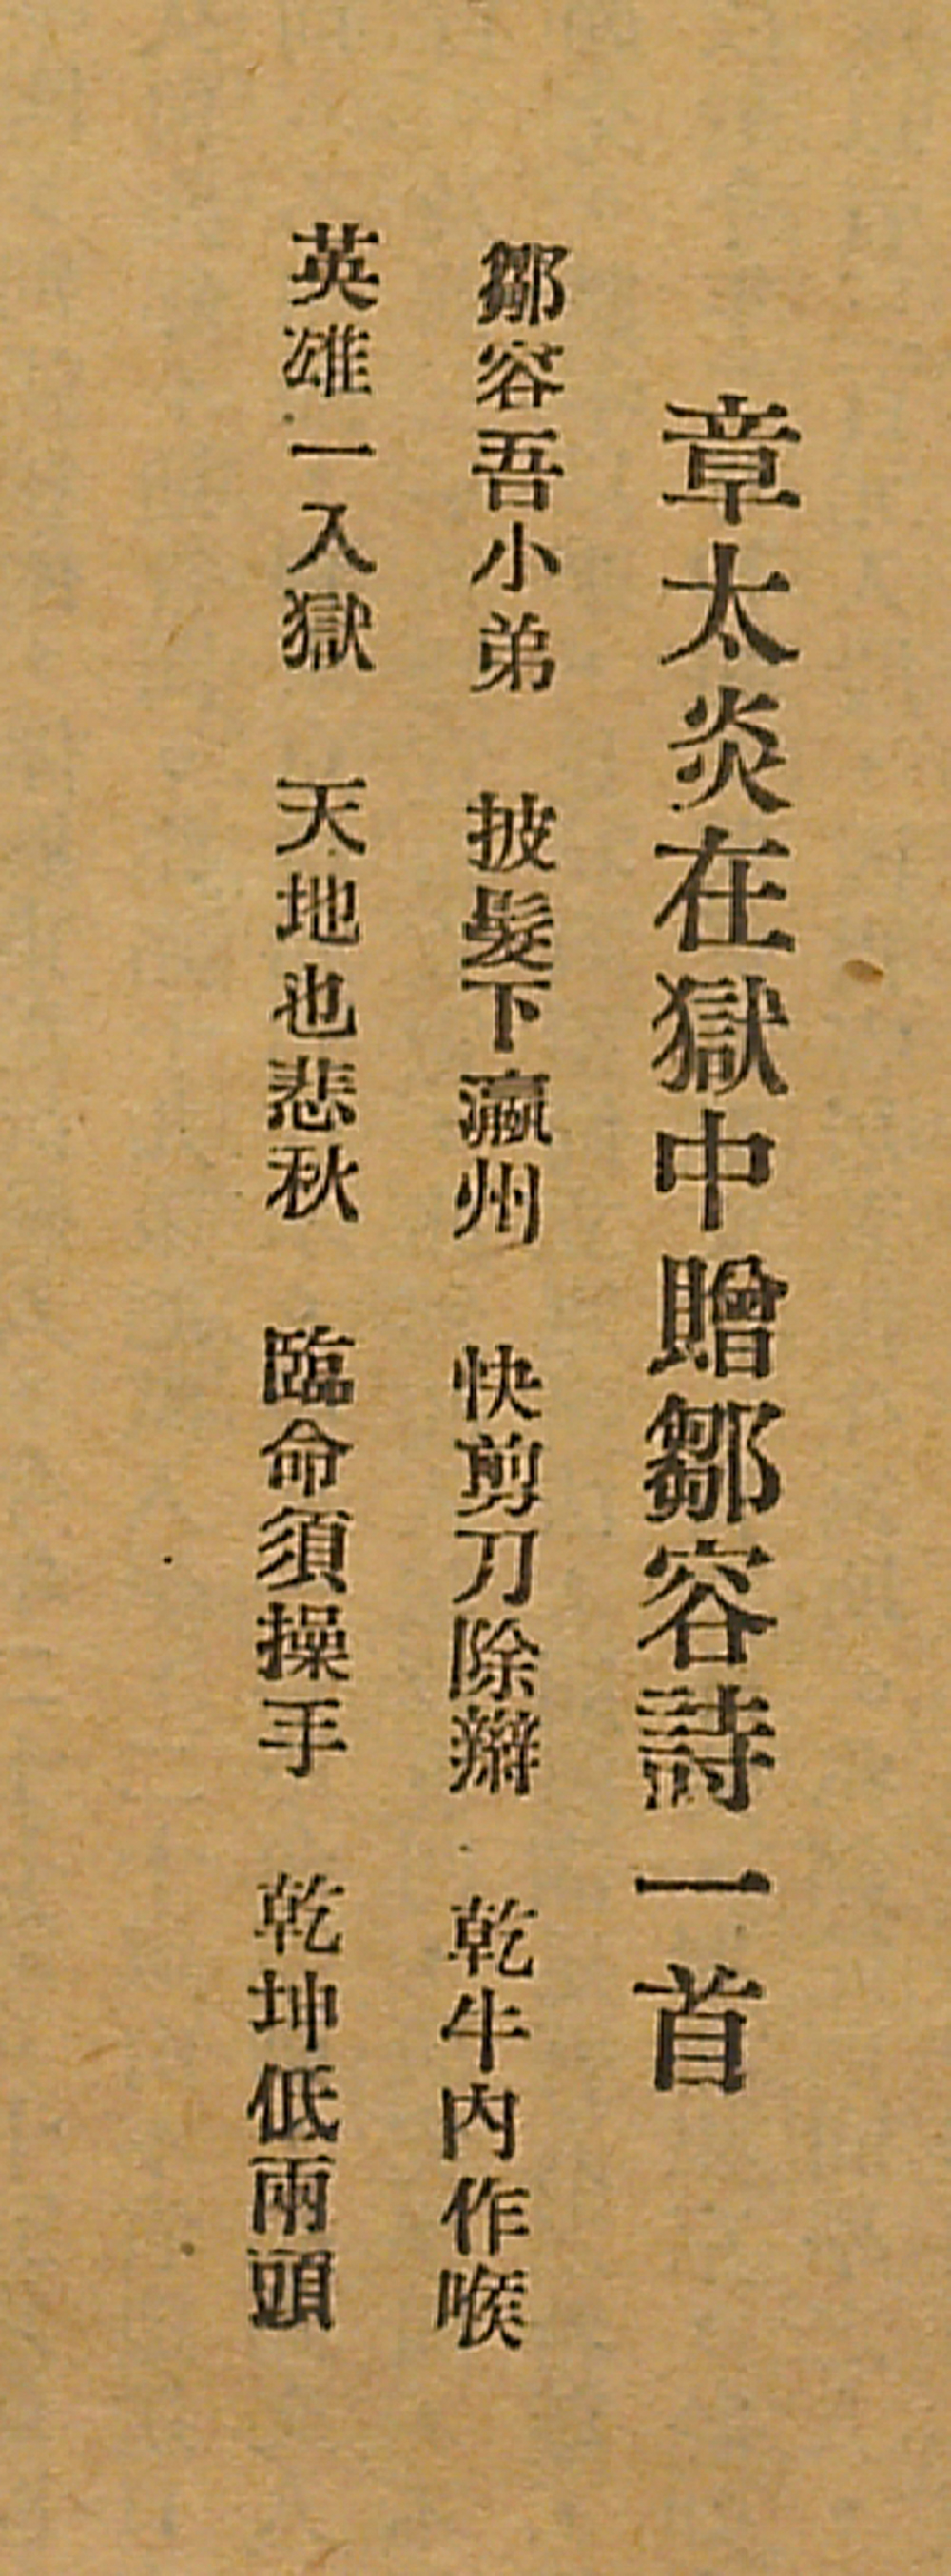 章太炎在獄中贈鄒容詩一首
鄒容吾小弟　披髮下瀛州　快剪刀除辮　乾牛內作喉
英雄一入獄　天地也悲秋　臨命須操手　乾坤低兩頭